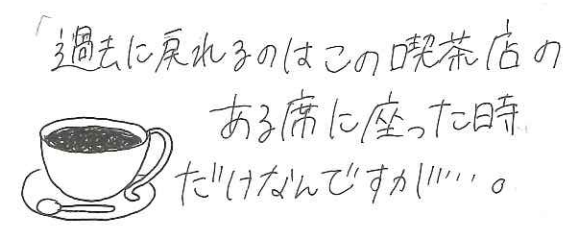 「過去に戻れるのはこの喫茶店の
ある席に座った時
だけなんですが…。